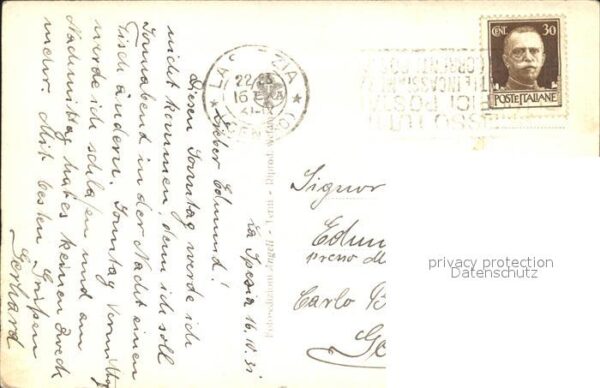 La Spezia 16.IV.31
Lieber Edmund!
Diesen Sonntag werde ich
nicht kommen, denn ich soll
Sonnabend in der Nacht einen
Tisch ändern. Sonntag Vormittag
werde ich schlafen und am
Nachmittag hat es keinen Zweck
mehr. Mit besten Grüßen
Gerhard
Signor
Edmun
presso
Carlo B
Ge
CENT. 30
POSTE ITALIANE
LA SPEZIA
22-23
16
privacy protection
Datenschutz